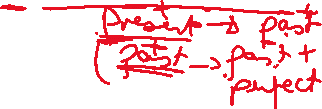 present → past
past → past +
perfect